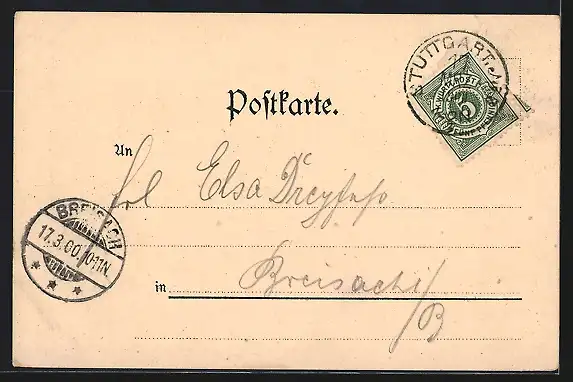 STUTTGART
K. WÜRT. POST
5
FÜNF PFENNIG
Postkarte.
An
Frl Elsa Dreyfuss
BREISACH
17.3.00. 10-11N.
in Breisach
/B